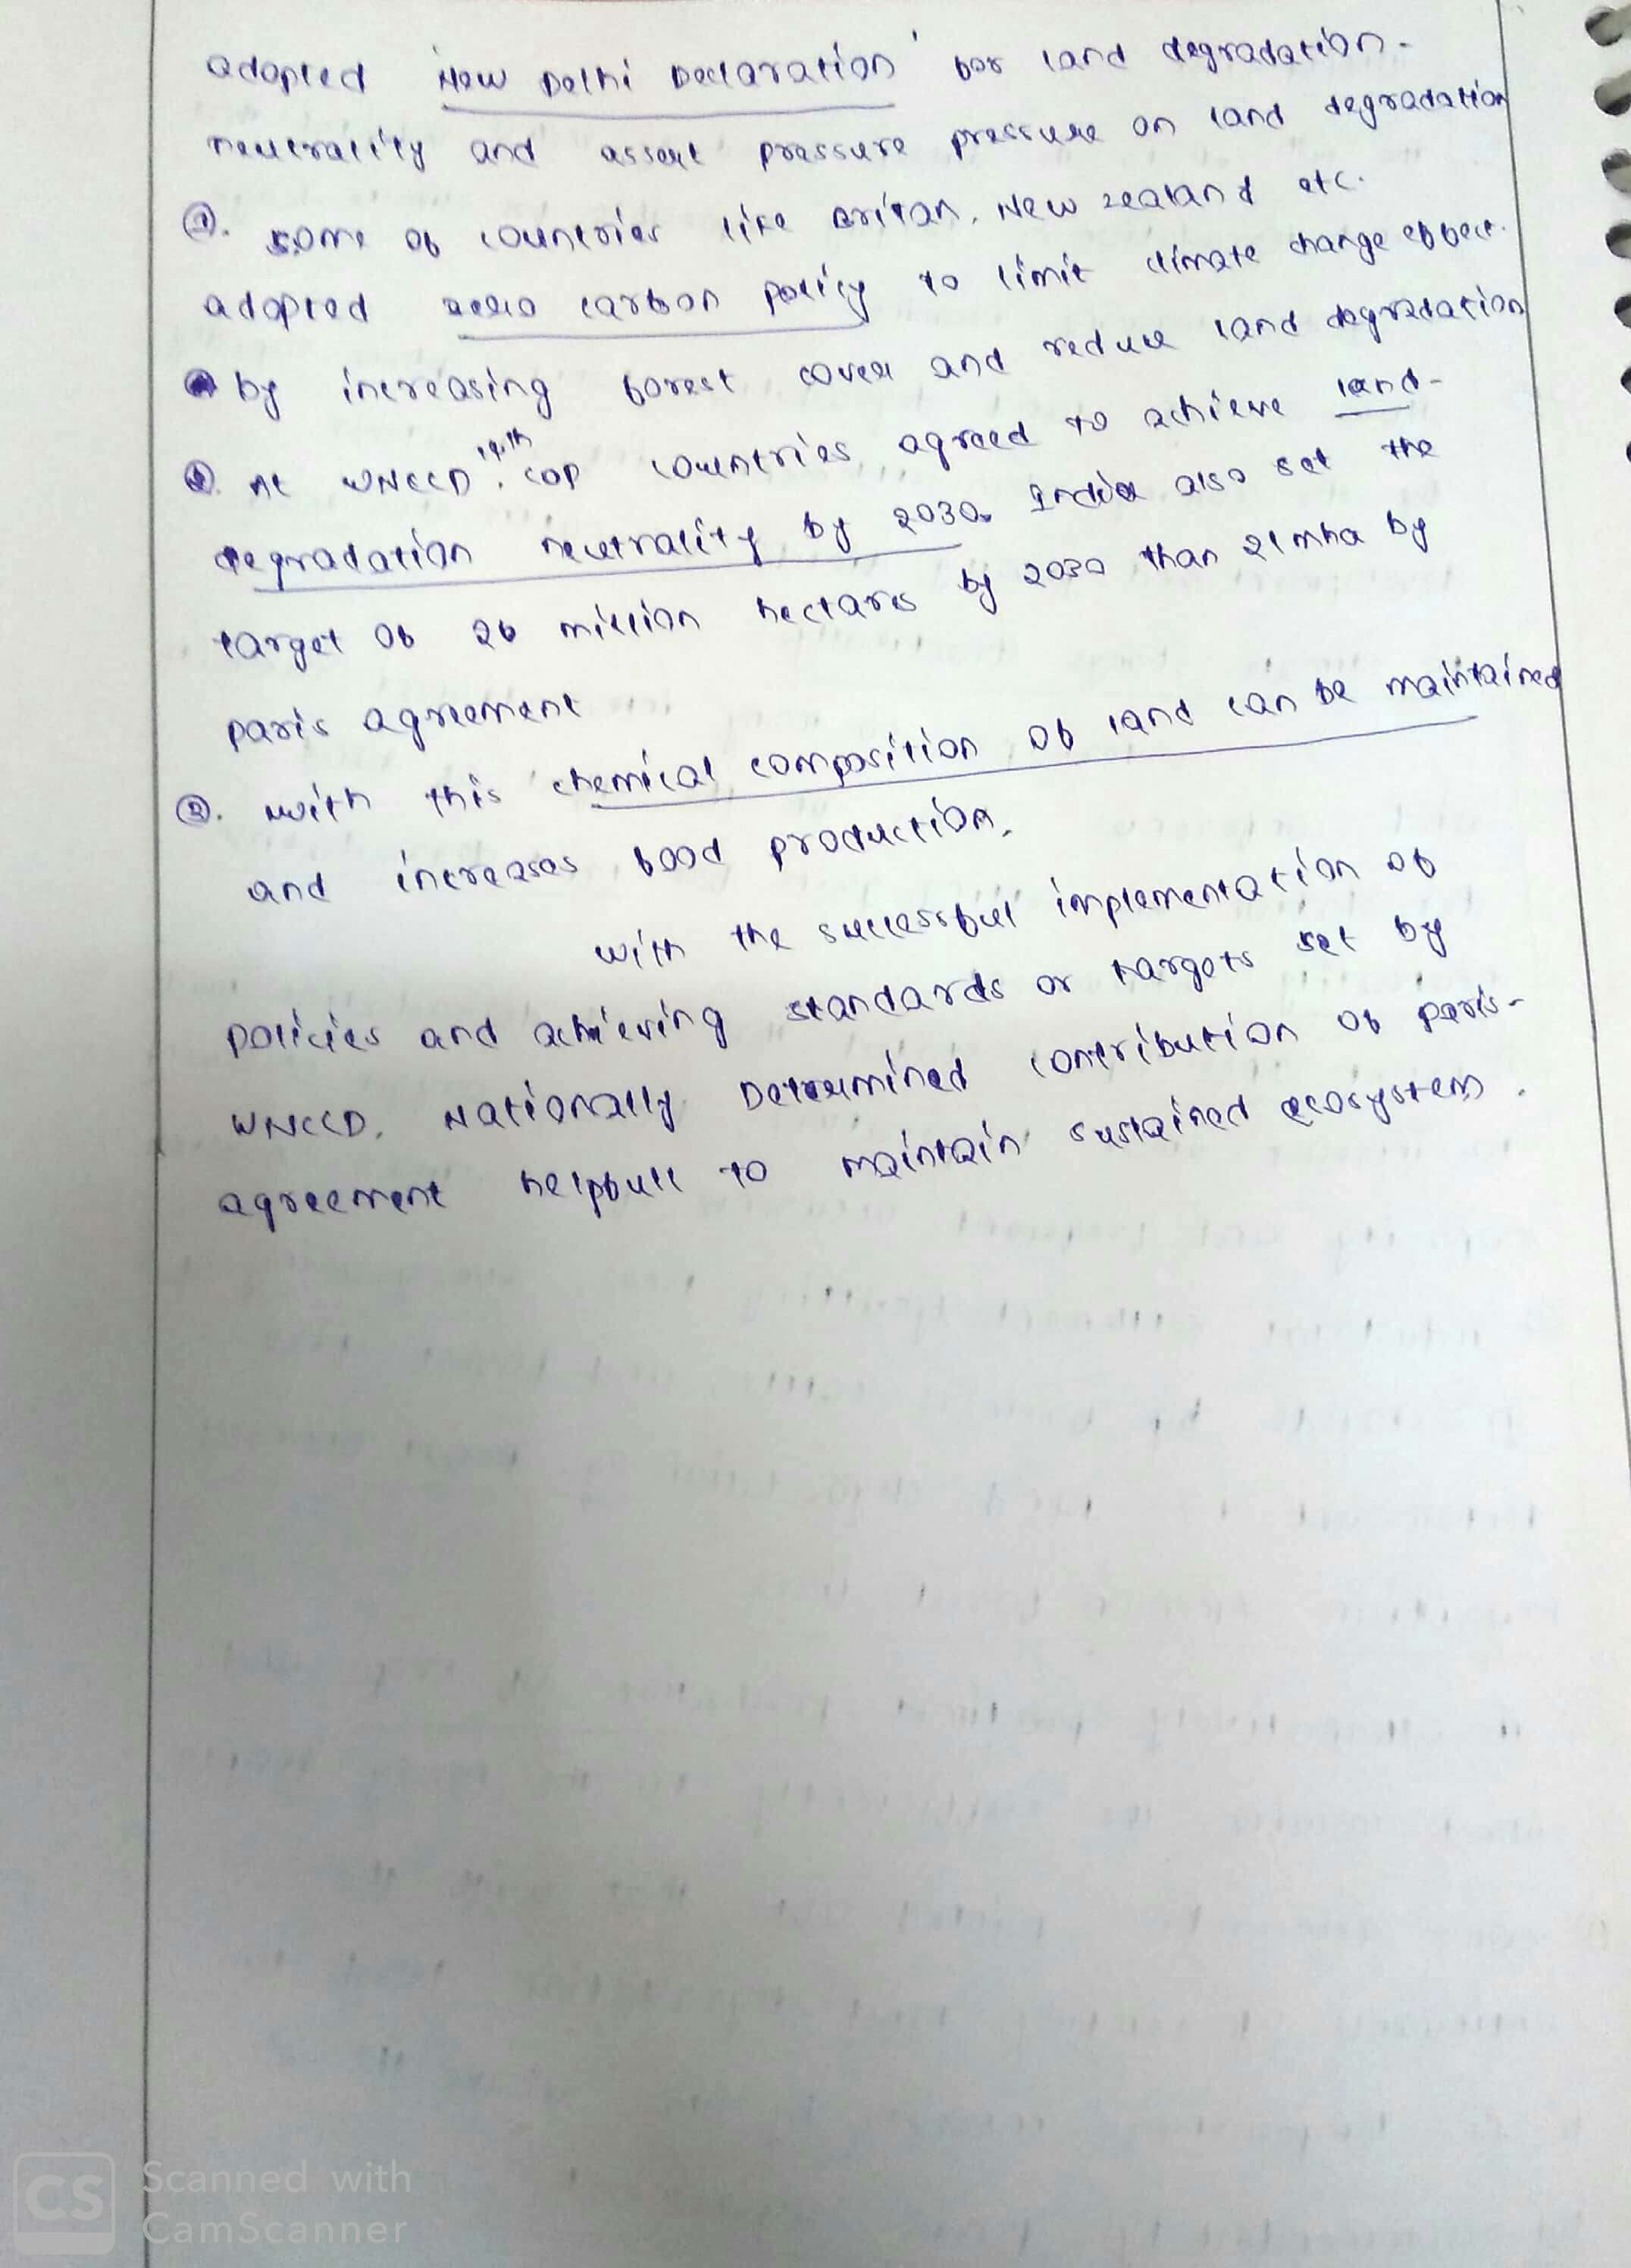 adopted 'New Delhi Declaration' for land degradation-
neutrality and assert pressure pressure on land degradation
①. some of countries like Britan, New zealand etc.
adopted zero carbon policy to limit climate change effect.
by increasing forest cover and reduce land degradation
At UNCCD 14th COP countries agreed to achieve land-
degradation neutrality by 2030. India also set the
target of 26 million hectares by 2030 than 21 mha by
paris agreement
③. with this chemical composition of land can be maintained
and increases food production.
with the successful implementation of
policies and achieving standards or targets set by
UNCCD, Nationally Determined contribution of paris-
agreement helpfull to maintain sustained ecosystem.
CS Scanned with
CamScanner